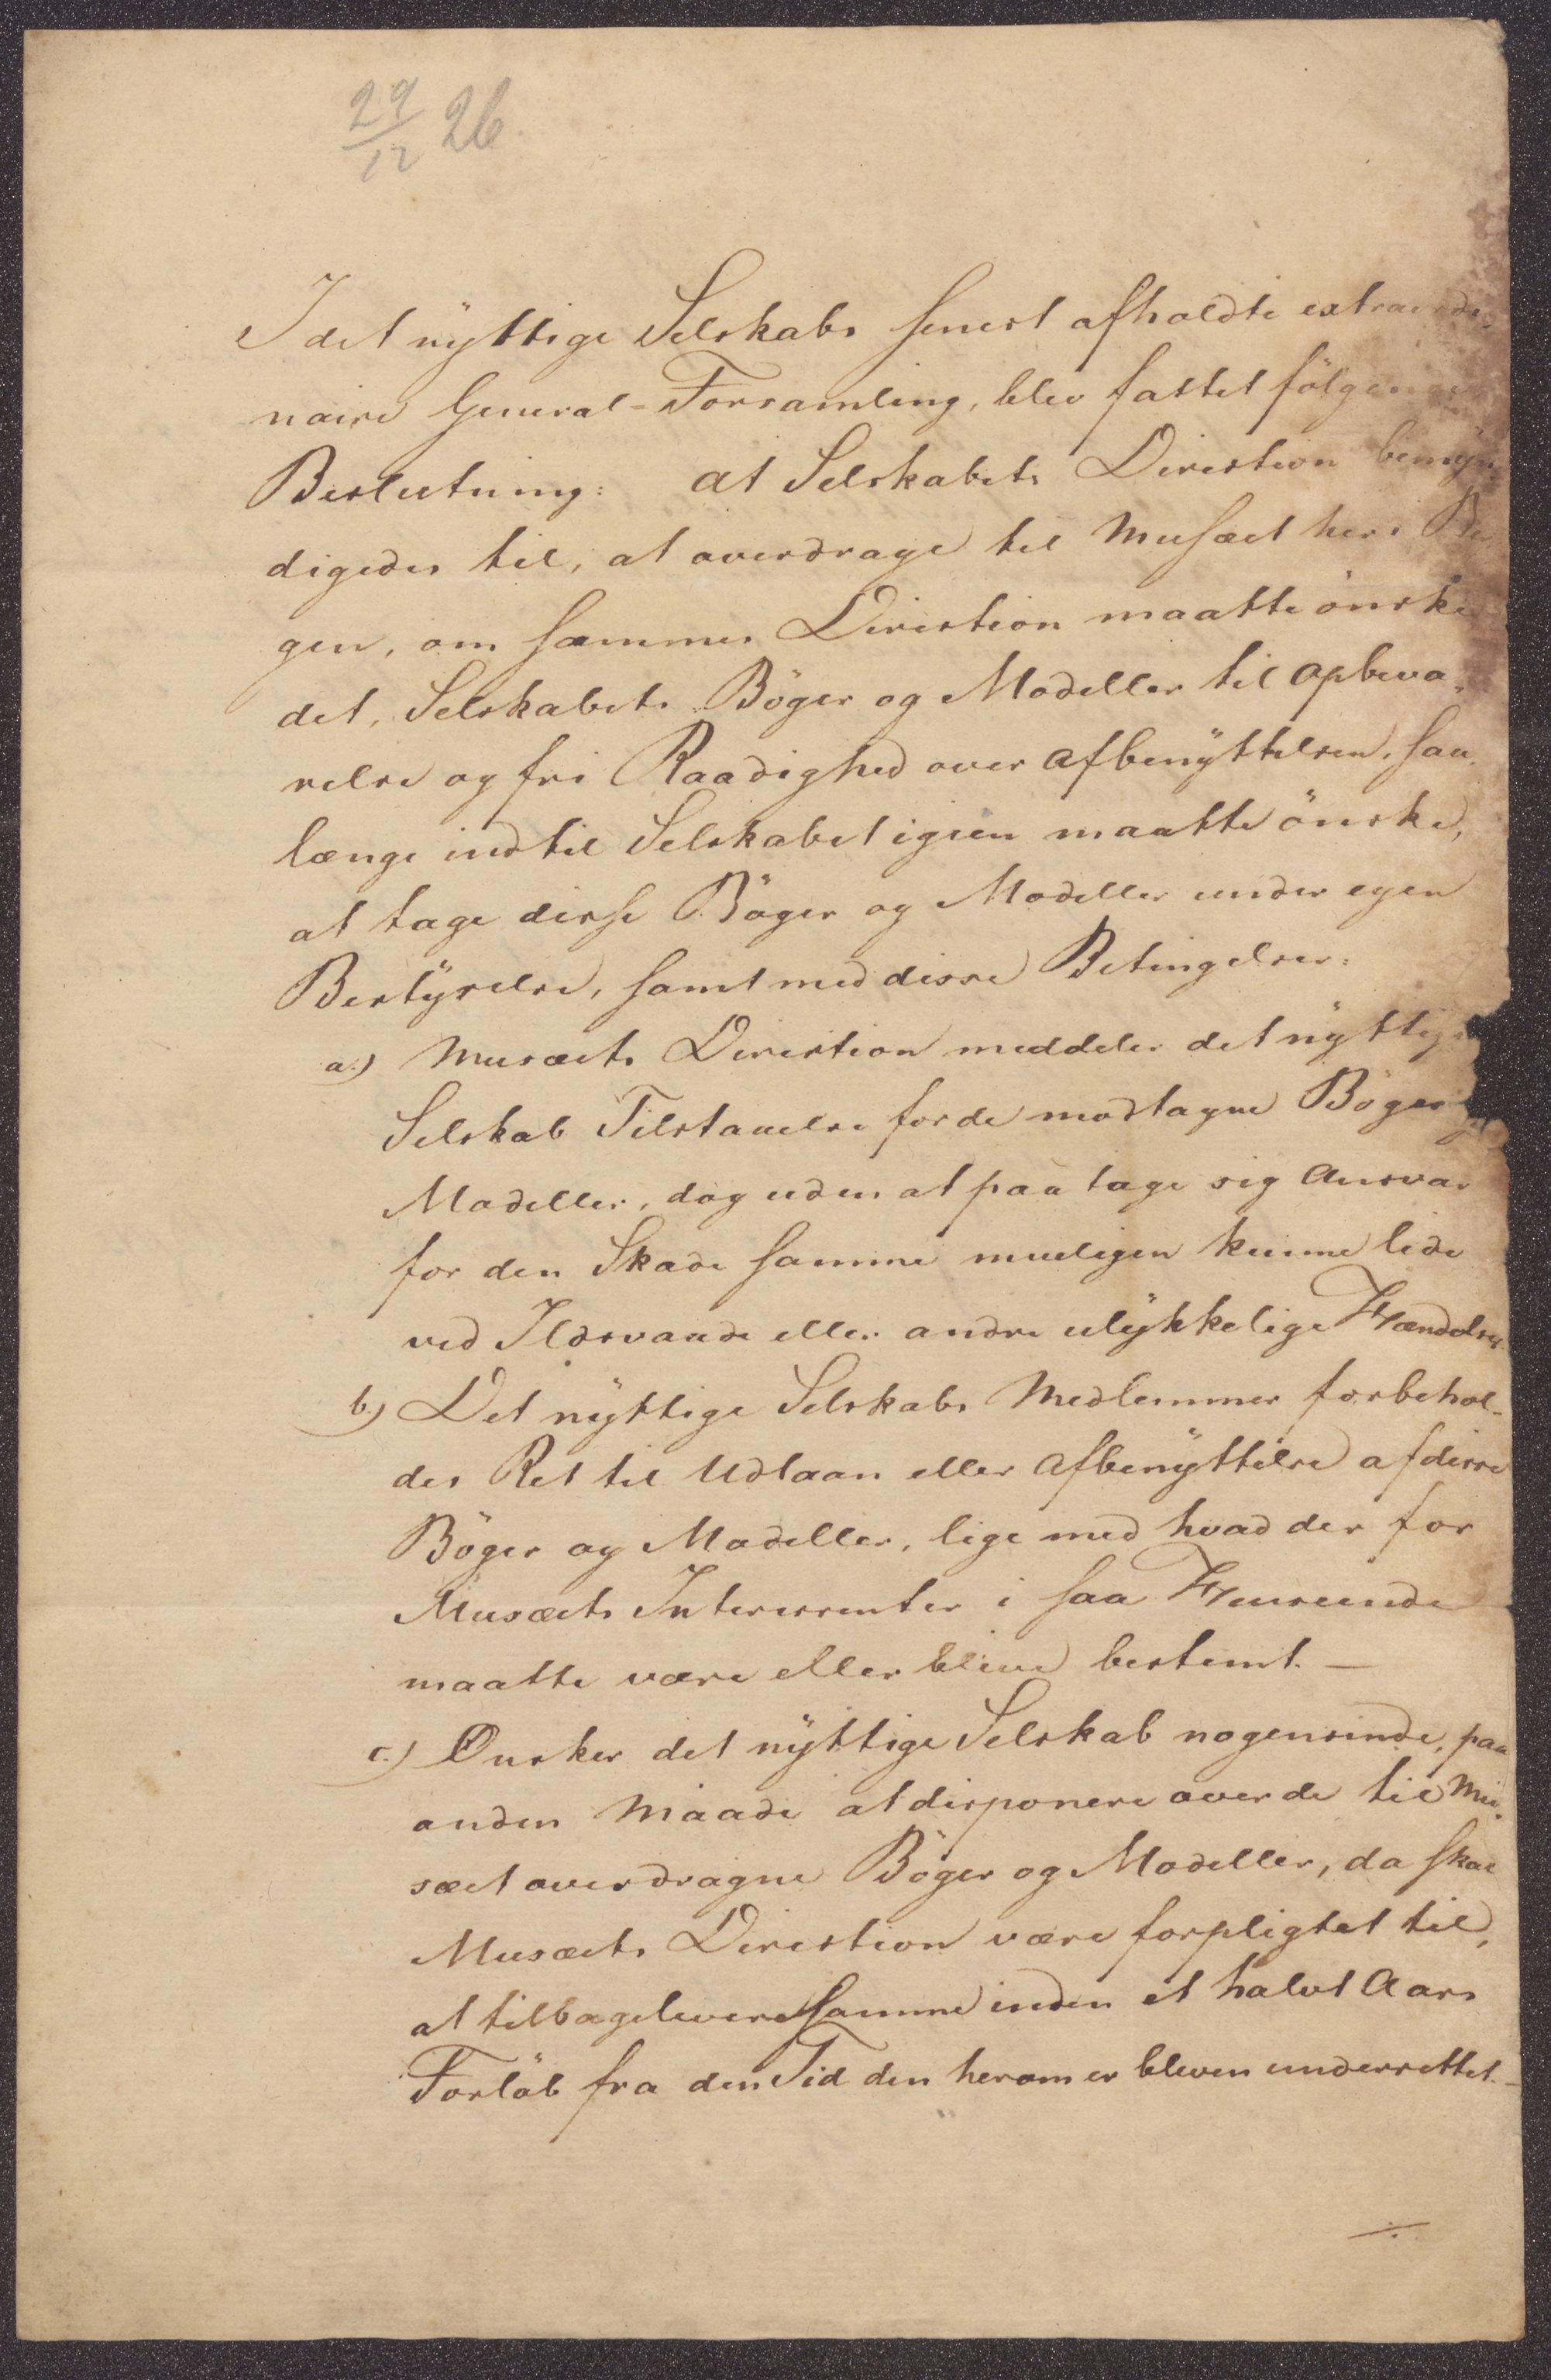 29/12 26
I det nyttige Selskabs senest afholdte extraordi-
naire General-Forsamling, blev fattet følgende
Beslutning: at Selskabets Direction bemyn-
digedes til, at overdrage til Musæet her i By-
gen, om sammes Direction maatte ønske
det, Selskabets Böger og Modeller til Opbeva-
relse og fri Raadighed over Afbenyttelsen, saa
længe indtil Selskabet igien maatte önske,
at tage disse Böger og Modeller under egen
Bestyrelse, samt med disse Betingelser:
a.) Musæets Direction meddeler det nyttige
Selskab Tilstaaelse for de modtagne Böger og
Modeller, dog uden at paatage sig Ansvar
for den Skade samme mueligen kunne lide
ved Ildsvaade eller andre ulykkelige Hændelser.
b.) Det nyttige Selskabs Medlemmer forbehol-
des Ret til Udlaan eller Afbenyttelse af disse
Böger og Modeller, lige med hvad der for
Musæets Interessenter i saa Henseende
maatte være eller blive bestemt. —
c.) Ønsker det nyttige Selskab nogensinde, paa
anden Maade at disponere over de til Mu-
sæet overdragne Böger og Modeller, da skal
Musæets Direction være forpligtet til,
at tilbagelevere samme inden et halvt Aars
Forlöb fra den Tid den herom er bleven underrettet. —